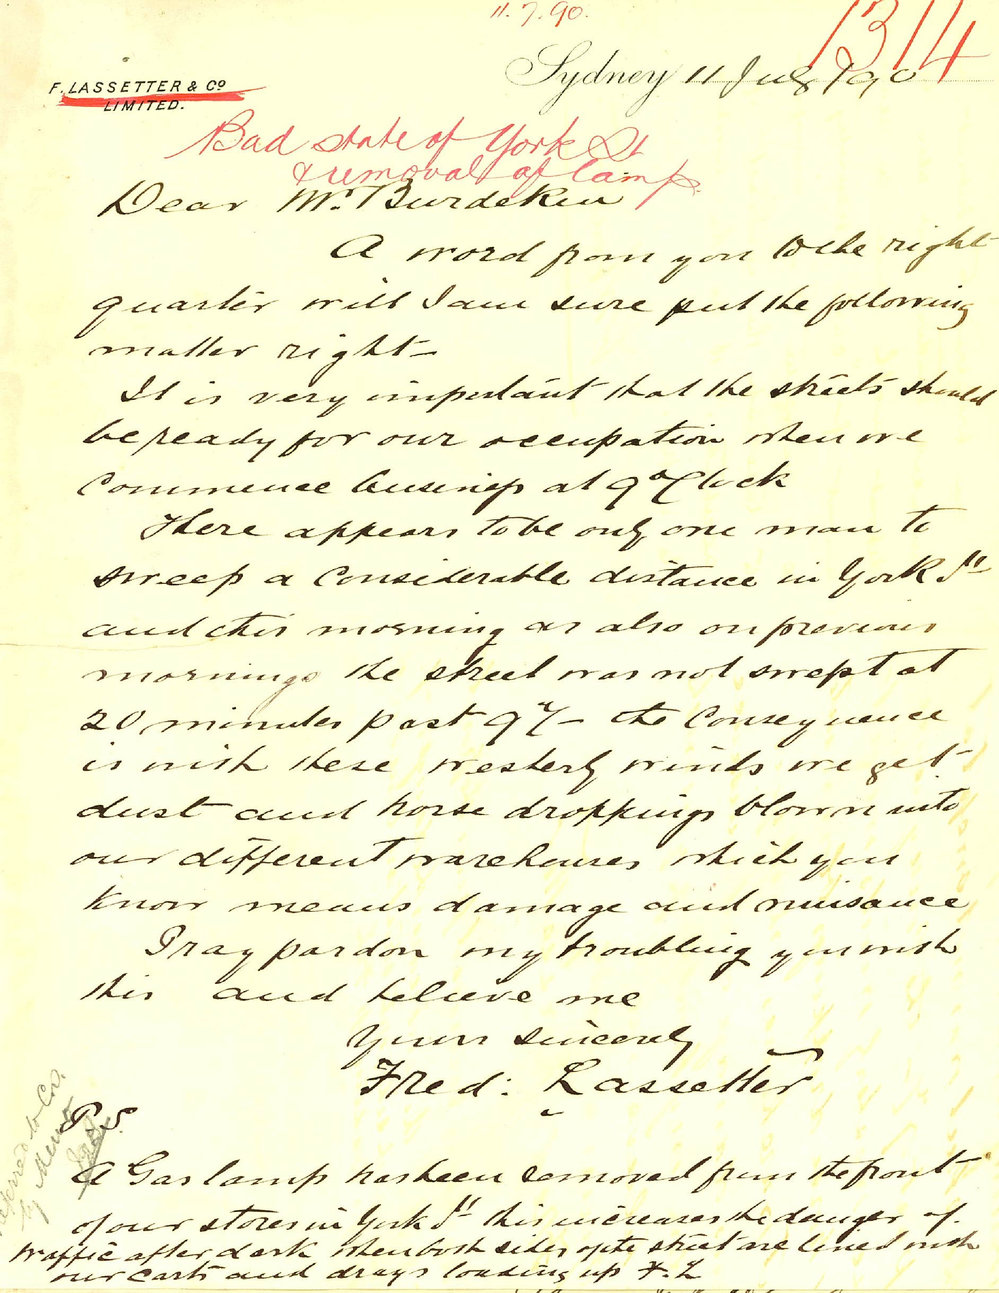 11.7.90.
1314
F. LASSETTER & Co
LIMITED.
Sydney 11 July 1890
Bad state of York St
& removal of lamp.
Dear Mr. Burdekin
A word from you to the right
quarter will I am sure put the following
matter right—
It is very important that the streets should
be ready for our occupation when we
commence business at 9 o'Clock
There appears to be only one man to
sweep a considerable distance in York St
and this morning as also on previous
mornings the street was not swept at
20 minutes past 9 — the consequence
is with these westerly winds we get
dust and horse droppings blown into
our different warehouses which you
know means damage and nuisance
Pray pardon my troubling you with
this and believe me
Yours sincerely
Fred: Lassetter
P.S.
A Gas lamp has been removed from the front
of our stores in York St this increases the danger of
traffic after dark when both sides of the street are lined with
our carts and drays loading up F. L